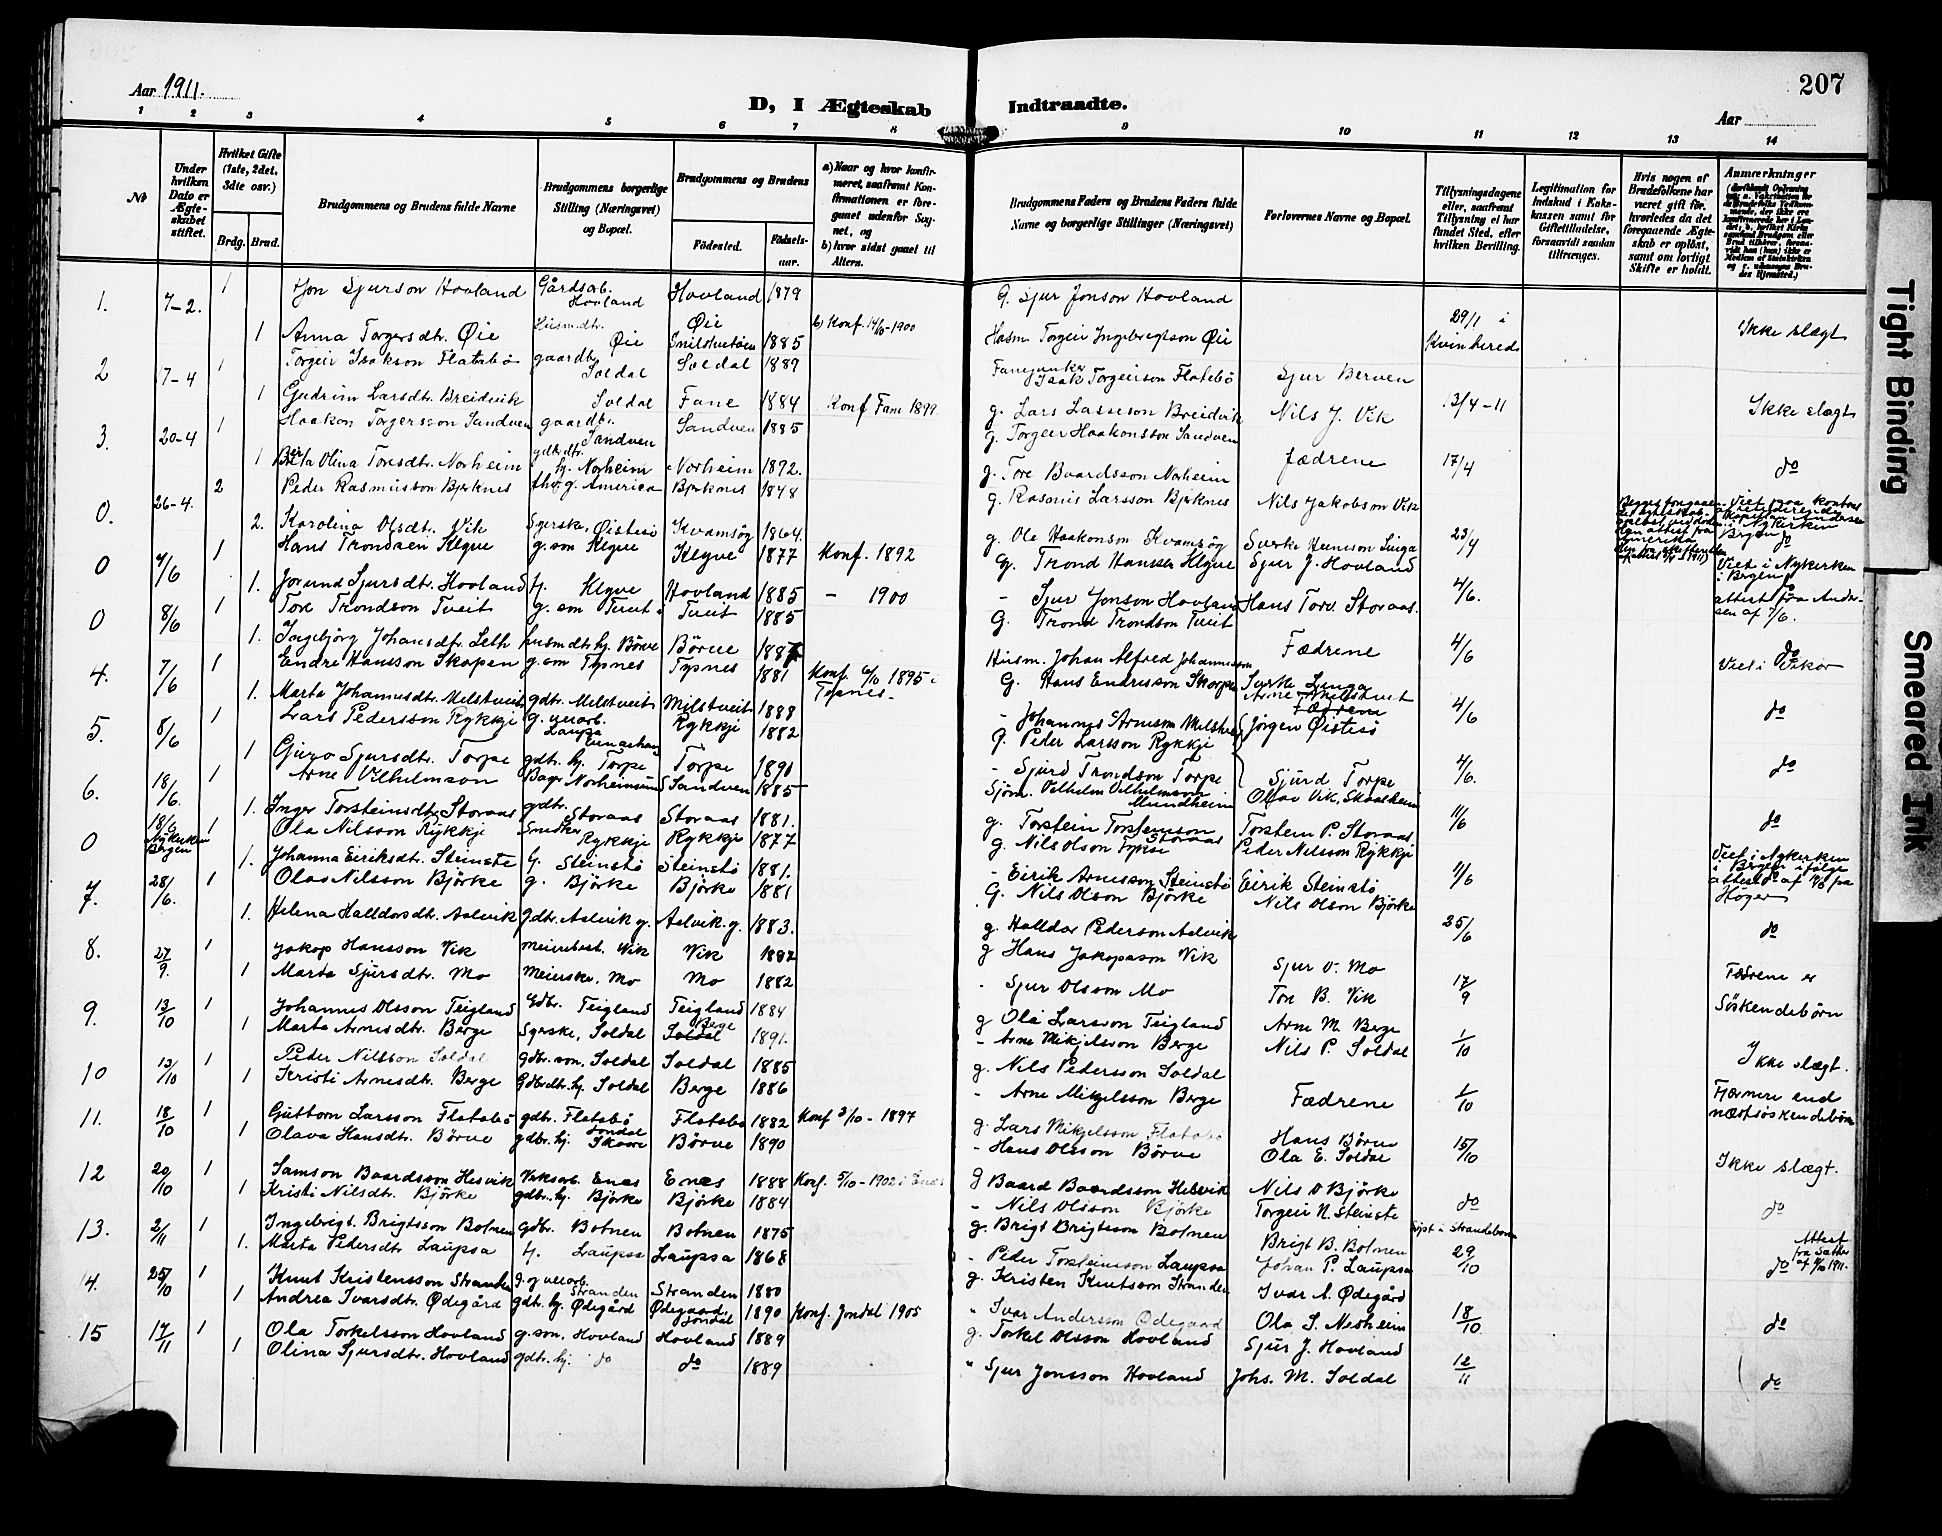 Aar 1911.
D, I Ægteskab Indtraadte.
207
Aar
1 2 3 4 5 6 7 8 9 10 11 12 13 14
No
Under hvilken Dato er Ægteskabet stiftet.
Hvilket Gifte (1ste, 2det, 3die osv.)
Brdg. Brud.
Brudgommens og Brudens fulde Navne
Brudgommens borgerlige Stilling (Næringsvei) og Bopæl.
Brudgommens og Brudens
Fødested. Fødselsaar.
a) Naar og hvor konfirmeret, saafremt Konfirmationen er foregaaet udenfor Sognet, og
b) hvor sidst gaaet til Alters.
Brudgommens Faders og Brudens Faders fulde Navne og borgerlige Stillinger (Næringsvei)
Forlovernes Navne og Bopæl.
Tillysningsdagene eller, saafremt Tillysning ei har fundet Sted, efter hvilken Bevilling.
Legitimation for Indskud i Enkekassen samt for Giftetilladelse, forsaavidt saadan tiltrænges.
Hvis nogen af Brudefolkene har været gift før, hvorledes da det foregaaende Ægteskab er opløst, samt om lovligt Skifte er holdt.
Anmærkninger
1. 7-2. 1 Jon Sjurson Hovland Gårdsarb. Hovland Hovland 1879 G. Sjur Jonson Hovland
1 Anna Torgersdtr. Øie Husmdtr. Øie Øie 1885 b) Konf. 14/6-1900 Husm Torgeir Ingebregtson Øie 29/1 i Kvinherred Ikke slægt
2 7-4 1 Torgeir Isakson Flatabø gaardbr. Soldal Soldal 1889 Fanejunker Isaak Torgeirson Flatebö Sjur Berven
1 Gudrun Larsdtr. Breidvik Soldal Fane 1884 Konf Fane 1899 g. Lars Lasseson Breidvik Nils J. Vik 3/4-11 Ikke slægt
3. 20-4 1 Haakon Torgersson Sandven gaardbr. Sandven Sandven 1885 g. Torgeir Haakonsson Sandven
1 Berta Olina Toresdtr. Norheim gdbrdtr. hj. Norheim Norheim 1892. g. Tore Baardsson Norheim Fædrene 17/4 do
0. 26-4. 2 Peder Rasmusson Bjerknes fhv. g. America Bjerknes 1848 g. Rasmus Larsson Bjerknes Nils Jakobson Vik
2. Karolina Olsdtr. Vik Syerske, Øistesö Kvamsøy 1864. g. Ole Haakonsm Kvamsøy 23/4
0 4/6 1 Hans Trondsen Klyve g. son Klyve Klyve 1877 Konf. 1892 G. Trond Hanssen Klyve Sjur J. Hovland
1. Jorund Sjursdtr. Hovland hj. Klyve Hovland 1885 - 1900 - Sjur Jonson Hovland Hans Torv. Storaas. 4/6. Viet i Nykerken i Bergen attest fra Andersen af 7/6.
0 8/6 1 Tore Trondson Tveit g. son Tveit. Tveit 1885 G. Trond Trondson Tveit
1. Ingebjörg Johansdtr. Leth husmdtr. hj. Börve Börve Husm. Johan Alfred Johannesson Fædrene 4/6 do
4. 7/6 1 Endre Hansson Skarpen g. son Typnes Typnes 1881 Konf. 6/10 1895 i Typnes. G. Hans Endresson Skorpe Viet i Vikör
1. Marta Johannesdtr. Melstveit gdtr. Melstveit Milstveit 1888 - Johannes Arneson Milstveit Jörgen Øistesö 4/6 do
5. 8/6 1 Lars Pedersson Rykkje g. uerarb. Laupsa Rykkje 1882 G. Peder Larsson Rykkje
1 Guro Sjursdtr. Torpe gdtr. hj. Torpe Torpe 1891 - Sjurd Trondson Torpe Sjurd Torpe 4/6. do
6. 18/6. 1 Arne Vilhelmson Bager Norheimsund Sandven 1885 Sjöm. Vilhelm Vilhelmson Mundheim Olav Vik, Skaalheim
1. Inger Torsteinsdtr Storaas gdtr. Storaas Storaas 1881. g. Torstein Torsteinson Storaas Torstein P. Storaas 11/6 do
0 18/6 Nykerken Bergen 1 Ola Nilsson Rykkje Smidker Rykkje Rykkje 1877 g. Nils Olson Peder Nilsson Rykkje
1. Johanna Eiriksdtr. Steinstö hj. Steinstö Steinstö 1881. - Eirik Arnesson Steinstö Eirik Steinstö 11/6 Viet i Nykerken i Bergen ifölge attest af 19/6 fra Höyer
7. 28/6. 1 Olav Nilsson Björke g. Björke Björke 1881 G. Nils Olson Björke Nils Olson Björke
1. Helena Halldorsdtr. Aalvik gdtr. Aalvik g. Aalvik. g. 1883. g. Halldor Pederson Aalvik 25/6 do
8. 27/9. 1 Jakop Hansson Vik Meieribest. Vik Vik g Hans Jakopsson Vik Sjur O. Mo
1 Marta Sjursdtr. Mo Meierske. Mo Mo 1882 - Sjur Olsson Mo Tore B. Vik 17/9 Fædrene er Söskendebörn
9. 13/10 1 Johannes Olsson Teigland Gdbr. Teigland Teigland 1884 g Ola Larsson Teigland Arne M. Berge
1 Marta Arnesdtr. Berge Syerske, Soldal Berge 1891. - Arne Mikjelsson Berge Nils P. Soldal 1/10 Ikke slægt.
10 13/10 1 Peder Nilsson Soldal Gdbr. son, Soldal Soldal 1885 g. Nils Pedersson Soldal
1 Kristi Arnesdtr. Berge Gdbrdtr. hj. Soldal Berge 1886 - Arne Mikjelsson Berge Fædrene 1/10 Fjernere end næstsöskendebörn
11. 18/10 1 Guttorm Larsson Flatabö gdbr. Flatabö Flatabö 1882 Konf 3/10-1897 g. Lars Mikjelsson Flatabö Hans Börve
1 Olava Hansdtr. Börve gdbr. hj. Jondal Skaare Börve 1890 - Hans Olsson Börve Ola E. Soldal 15/10 Ikke slægt.
12 20/10 1 Samson Baardsson Hesvik Veksarb. Enæs Enæs 1888 Konf. 5/10-1902 i Enæs g Baard Baardsson Hesvik Nils O Björke
1 Kristi Nilsdtr. Björke gdbr. hj. Björke Björke 1884 - Nils Olsson Björke Torgeir N. Steinstö do do
13. 2/11 1 Ingebrigt. Brigtsson Botnen gdbr. Botnen Botnen 1875 g. Brigt Brigtsson Botnen Brigt B. Botnen lyst i Strandebarm
1. Marta Pedersdtr Laupsa hj. Laupsa Laupsa 1868 - Peder Torsteinsson Laupsa Johan P. Laupsa 29/10 do Attest fra Sætter
14. 25/10 1 Knut Kristensson Stranden g. og uerarb. Stranden Stranden 1880 g. Kristen Knutsson Stranden Ivar A. Ødegård
1 Andrea Ivarsdtr. Ødegård gdtr. hj. Ødegård Ødegaard Jondal 1890 Konf. Jondal 1905 " Ivar Andersson Ødegaard Ola S. Nesheim 18/10 do
15 17/11 1 Ola Torkelsson Hovland g. son. Hovland Hovland 1889 g. Torkel Olsson Hovland Sjur J. Hovland
1 Olina Sjursdtr. Hovland gdtr. hj. do do 1889 " Sjur Jonsson Hovland Johs. M. Soldal 12/11 do
Tight Binding
Smeared Ink